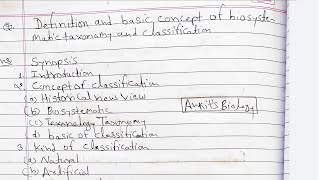 Q. Definition and basic concept of biosyste-
matic taxonomy and classification
Ans Synopsis
1. Introduction
2. Concept of classification
(a) Historical new View
(b) Biosystematic
Ankit's Biology
(c) Taxonomy Taxonomy
d) basic of classification
3. Kind of classification
(a) Natural
(b) Artificial